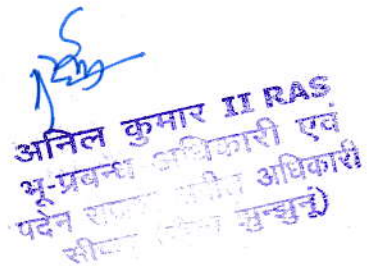 अनिल कुमार II RAS
भू-प्रबन्ध अधिकारी एवं
पदेन अपील अधिकारी
सीकर झुन्झुनूं)